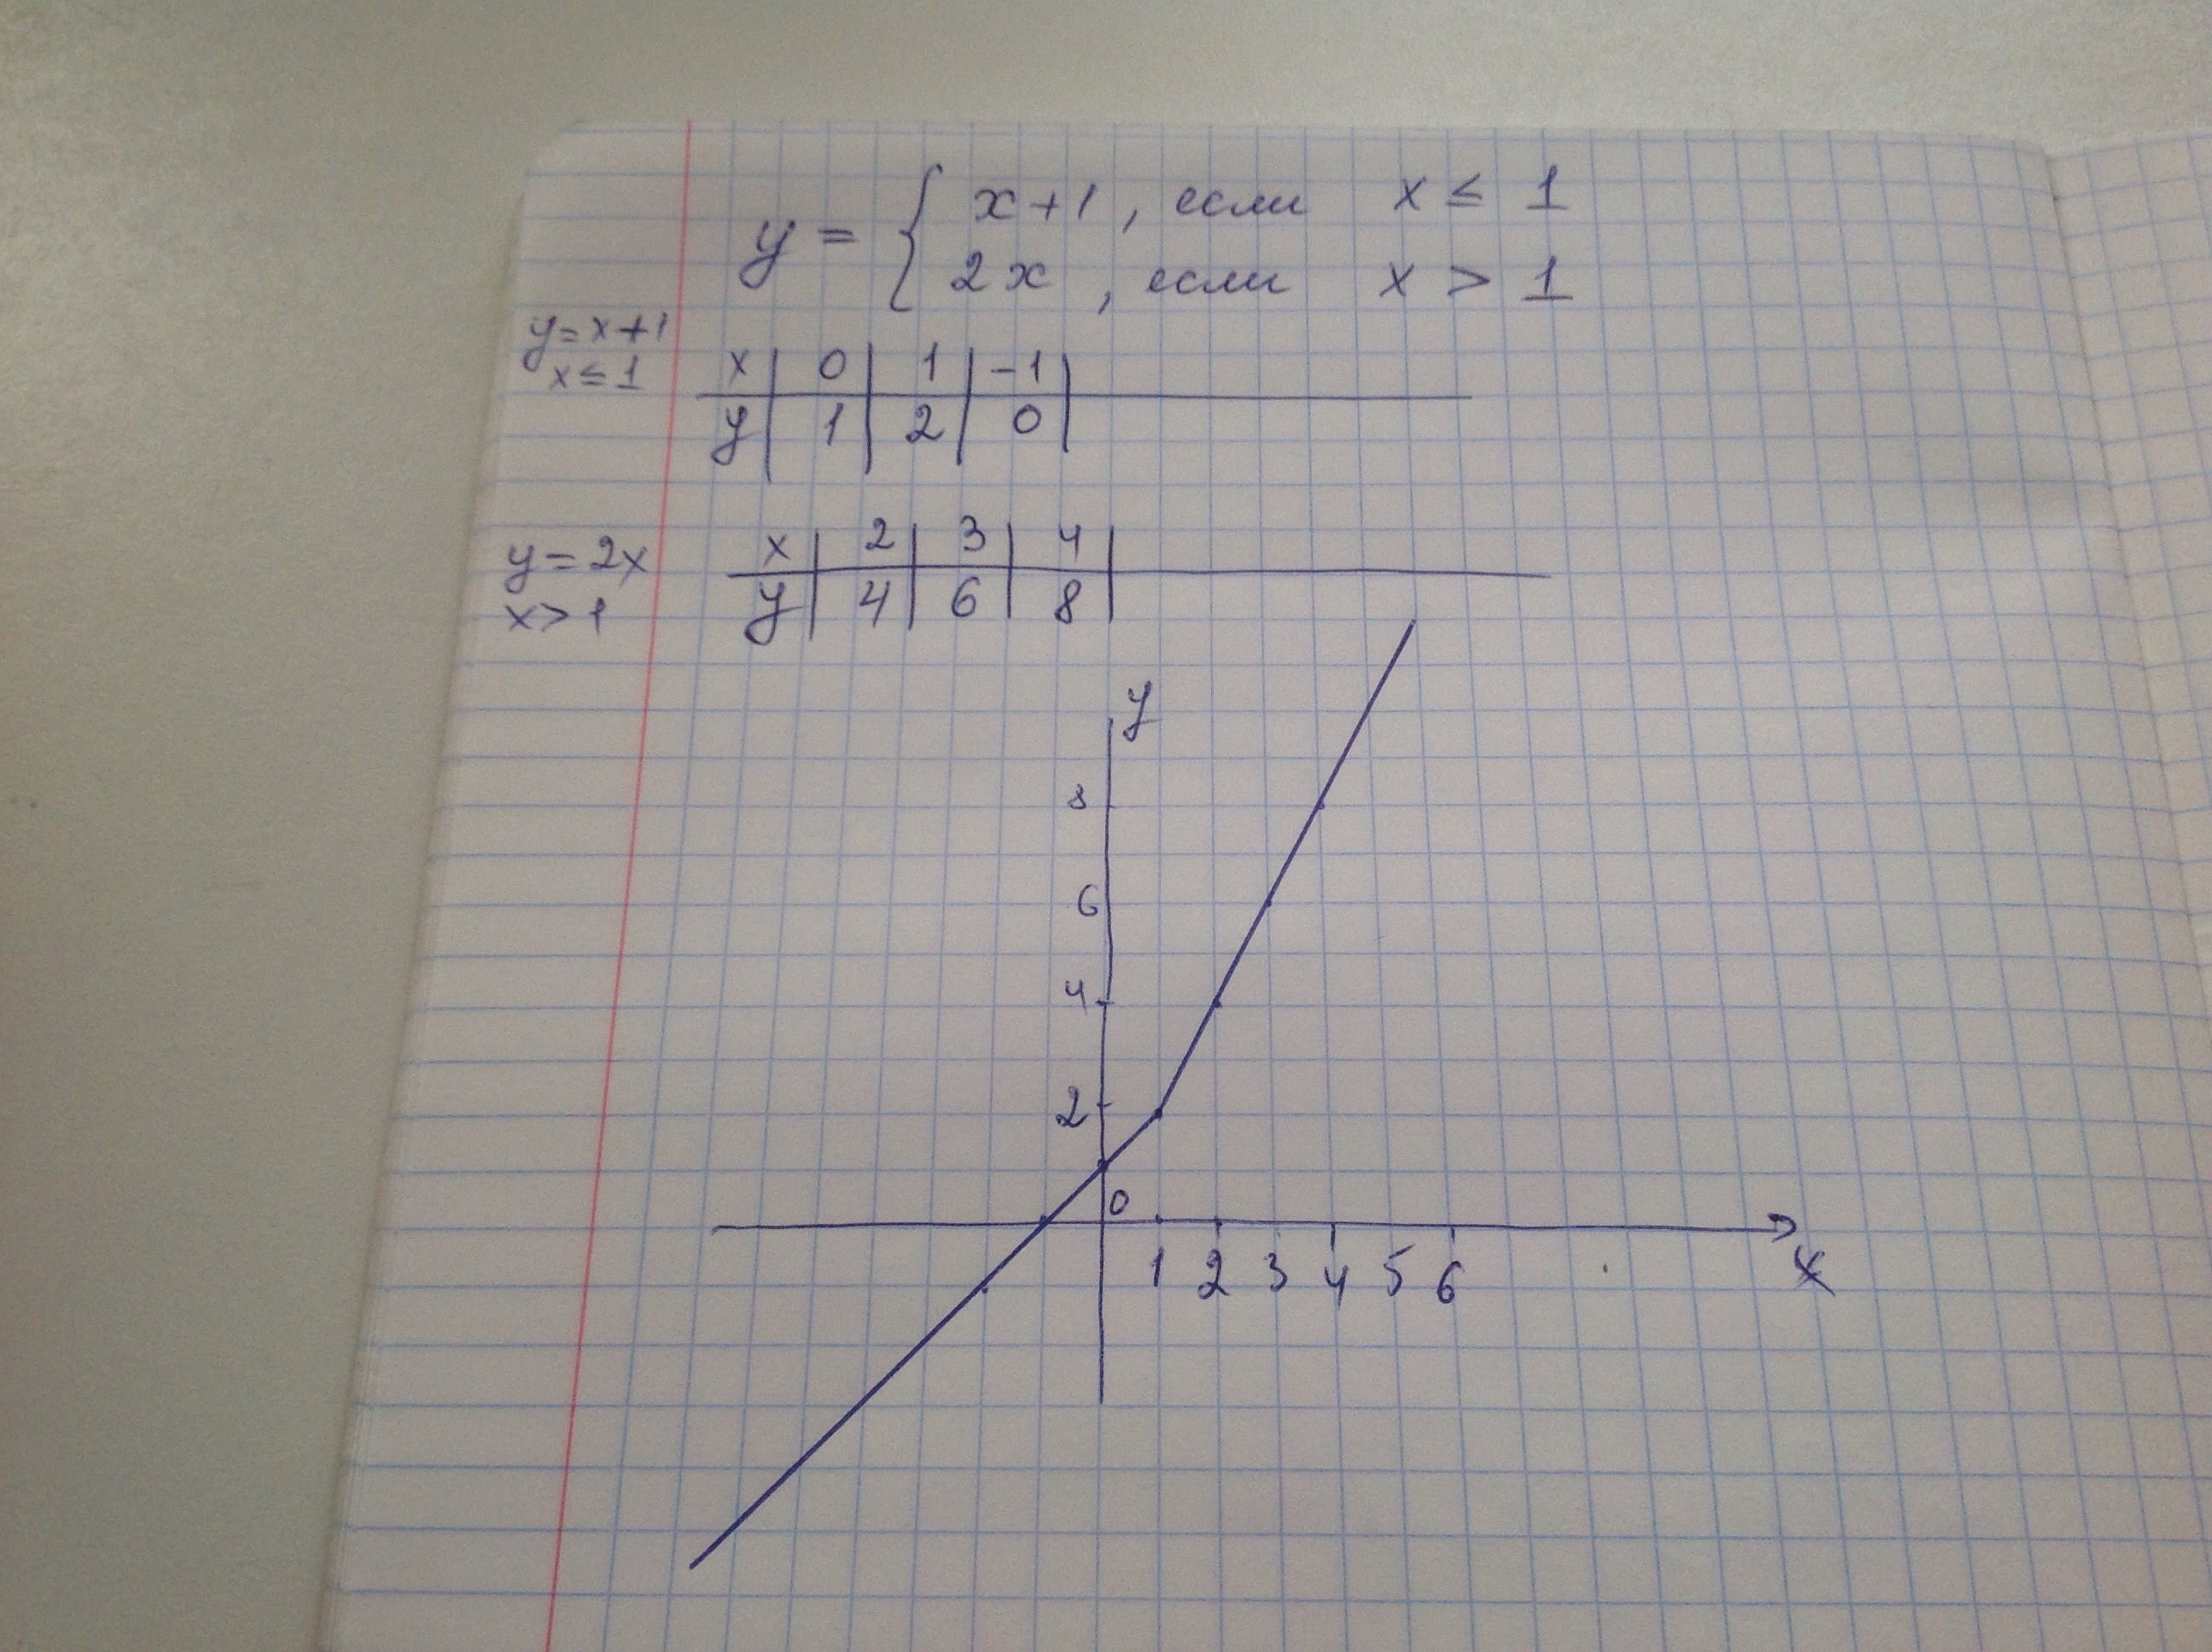 y = { x+1, если x ≤ 1
2x, если x > 1
y=x+1
x≤1
x | 0 | 1 | -1 |
y | 1 | 2 | 0 |
y=2x
x>1
x | 2 | 3 | 4 |
y | 4 | 6 | 8 |
y
8
6
4
2
0
1 2 3 4 5 6 x